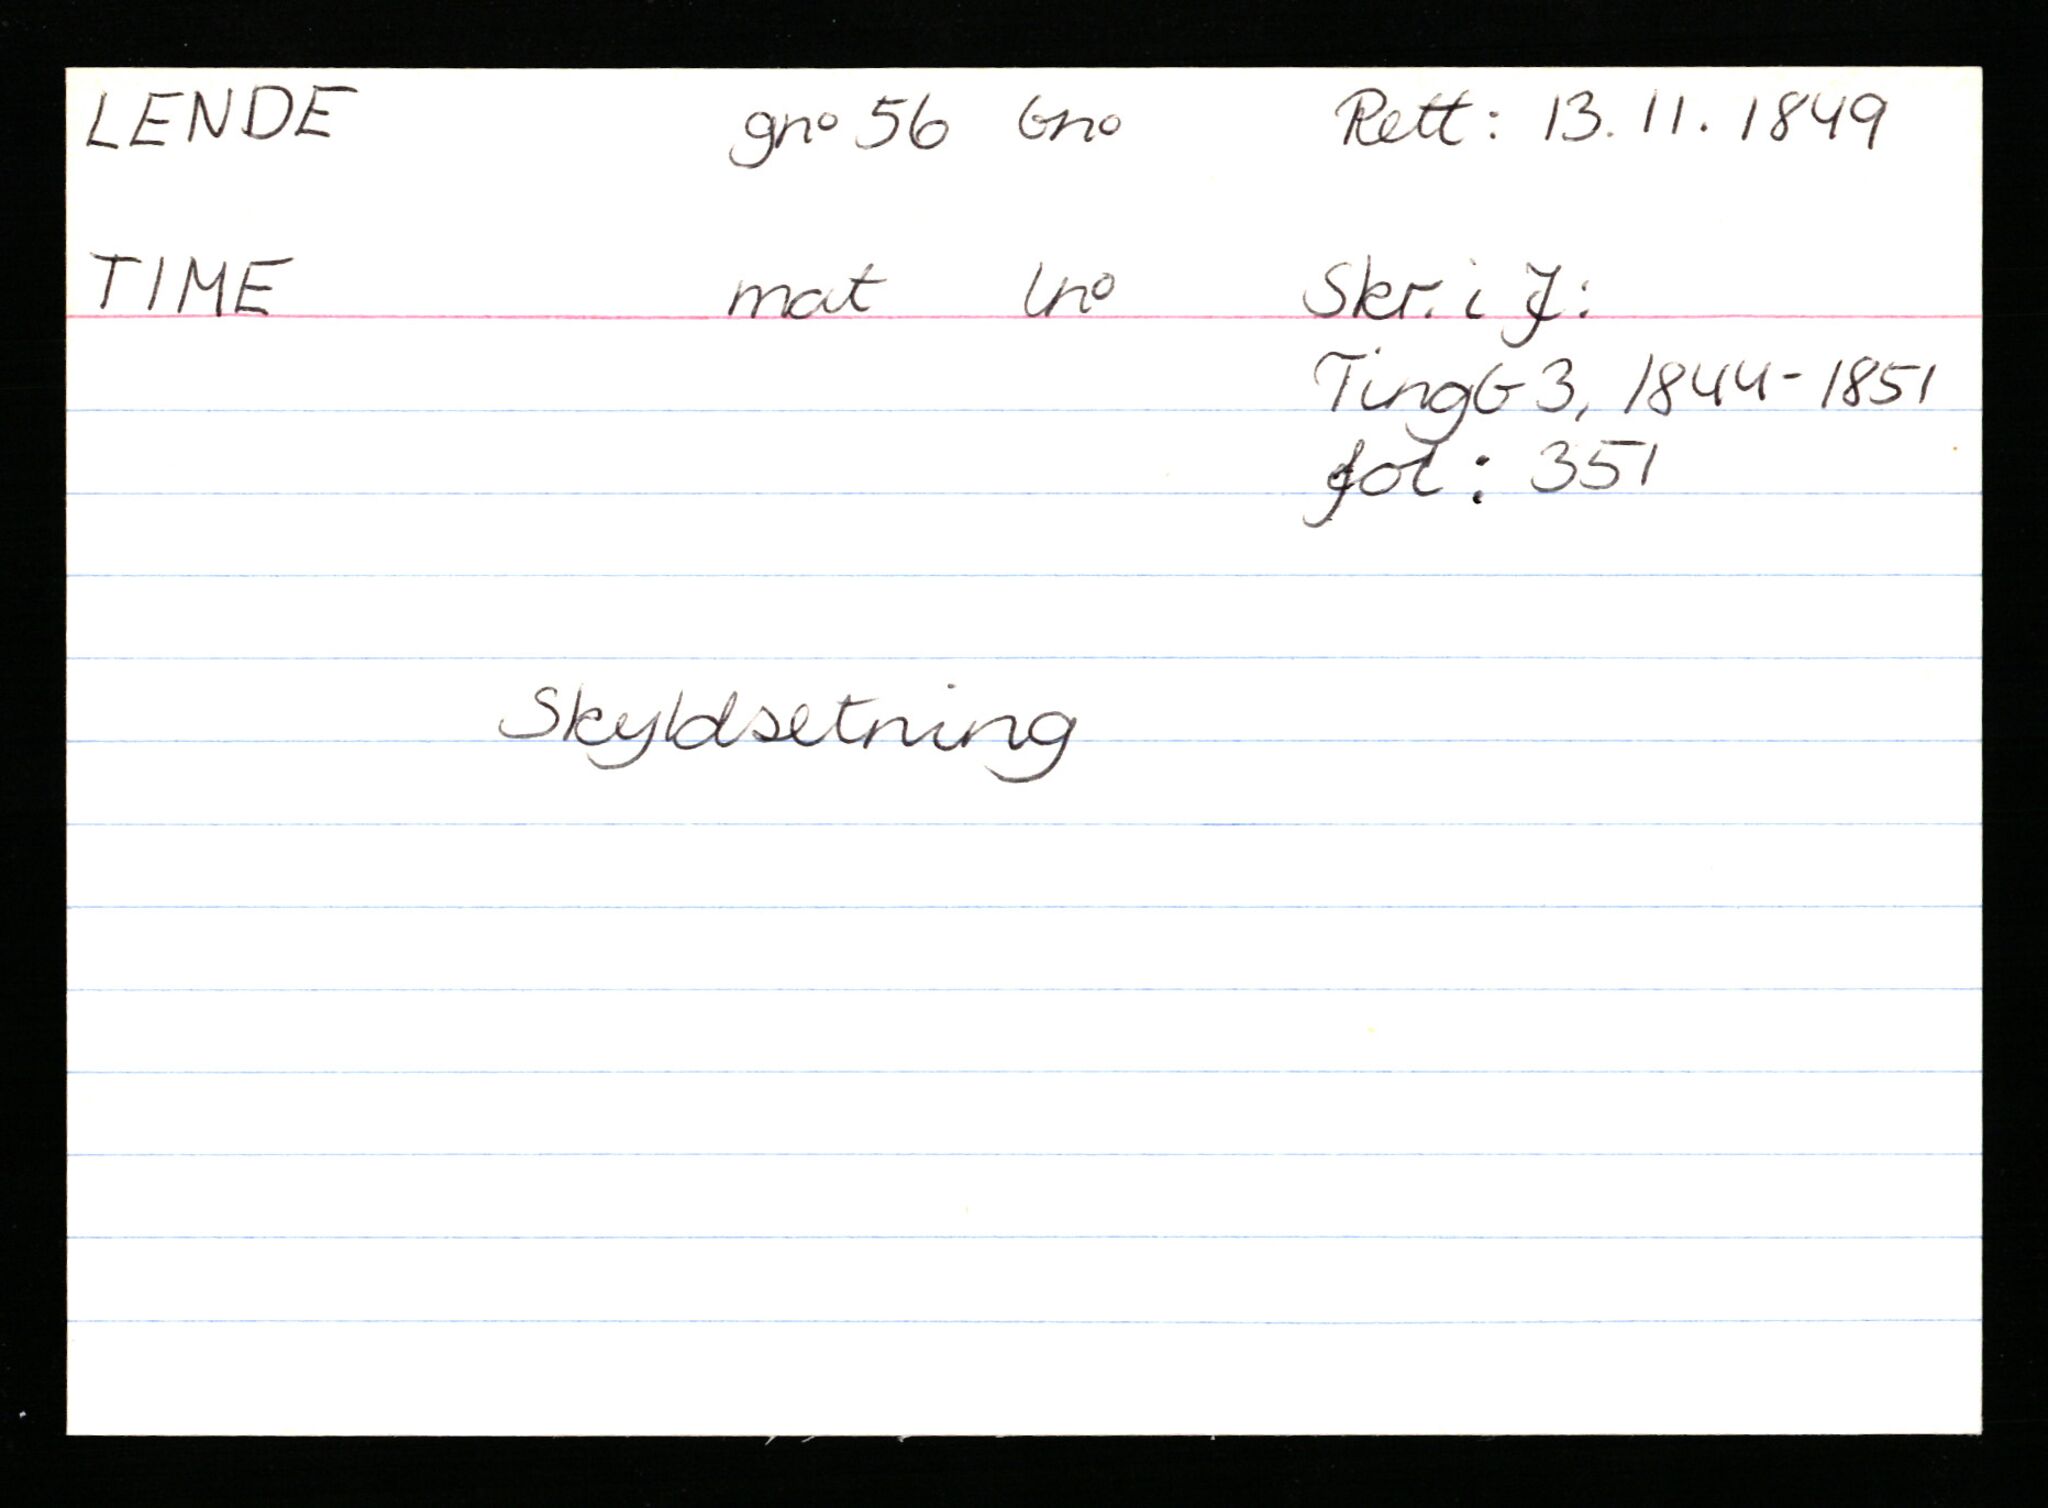 LENDE gno 56 bno Rett: 13.11.1849
TIME mat lno Skr. i J:
Tingb 3, 1844-1851
fol: 351
Skyldsetning